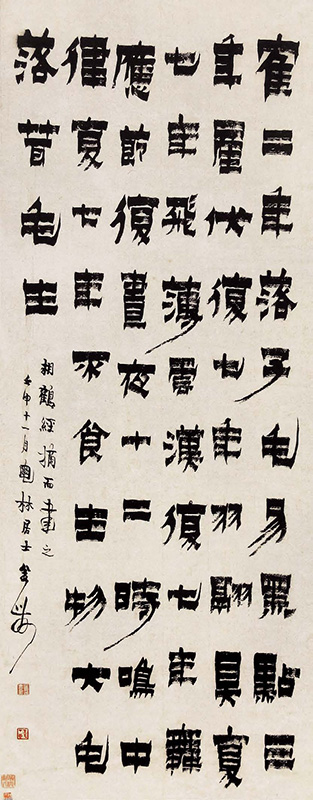 寉二年落子毛易黑點三
年產伏復七年羽翮具复
七年飛薄雲漢復七年舞
應節復晝夜十二時鳴中
律复七年不食生物大毛
落茸毛生
相鶴經摘而書之
壬申十一月 林居士